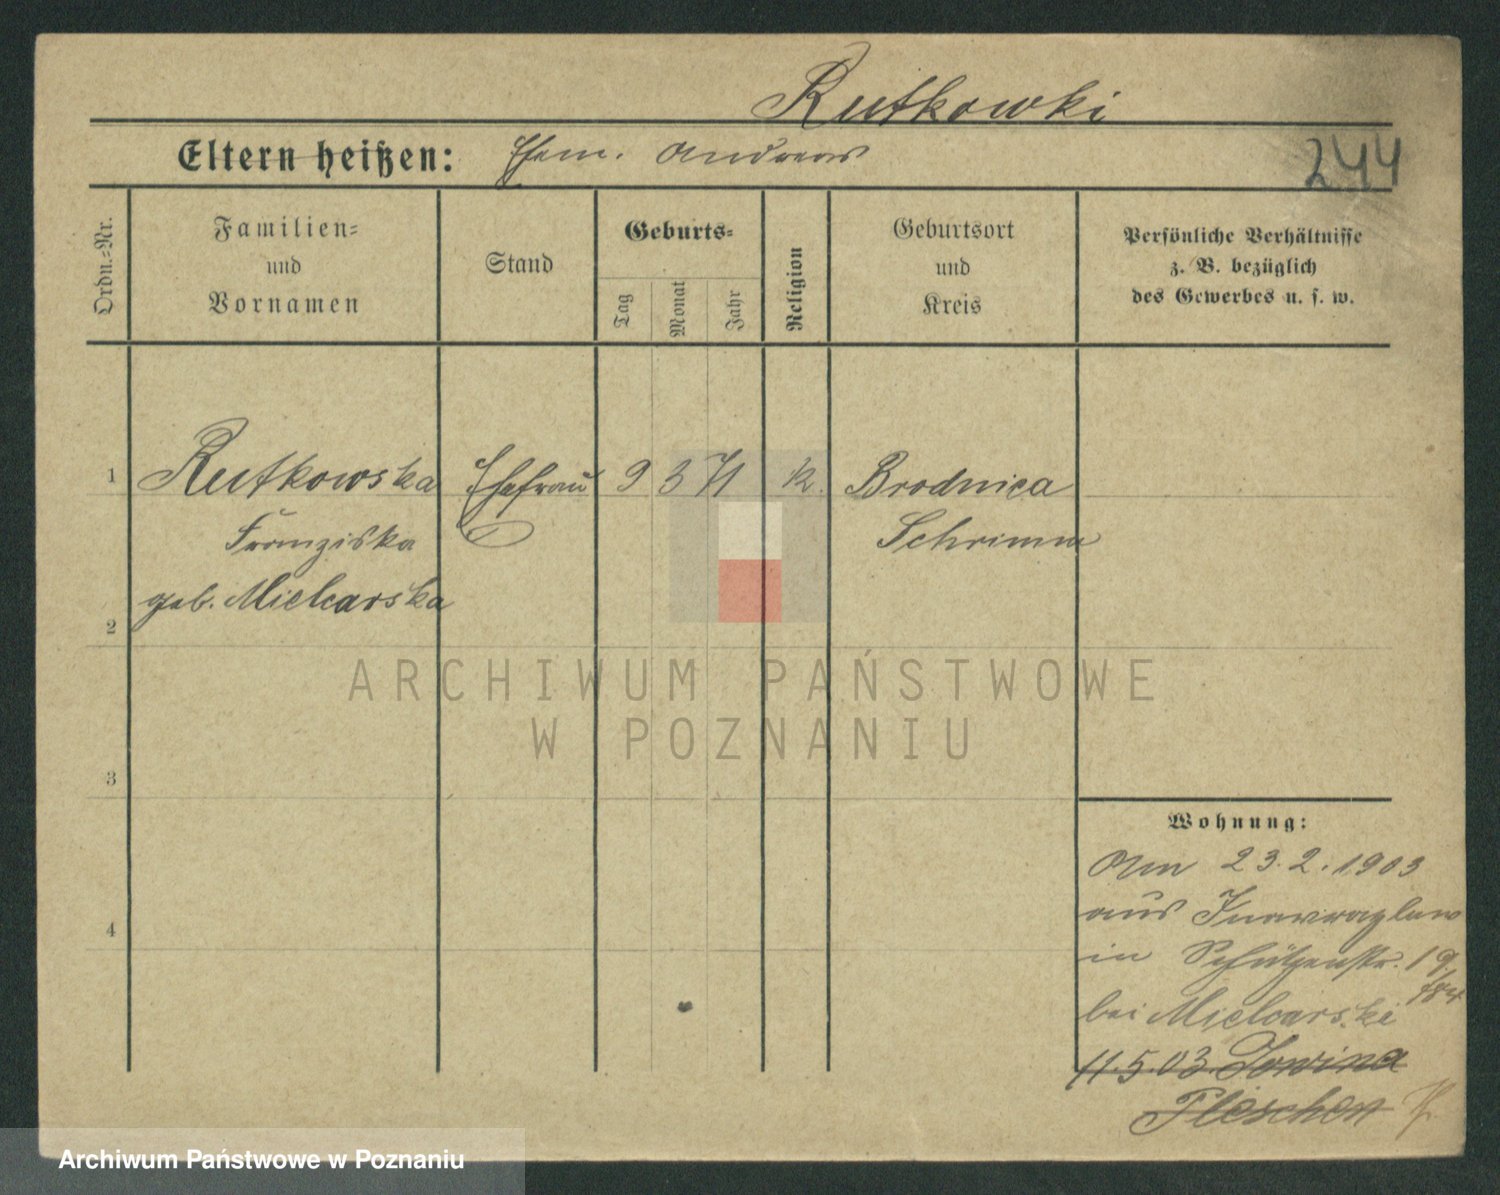 Rutkowki
Eltern heißen: Ehem. Andreas
244
Ordn.=Nr.
Familien=
und
Vornamen
Stand
Geburts=
Tag
Monat
Jahr
Religion
Geburtsort
und
Kreis
Persönliche Verhältnisse
z. B. bezüglich
des Gewerbes u. s. w.
1 Rutkowska Ehefrau 9 3 71 k. Brodnica
Franziska Schrimm
geb. Mielcarska
2
ARCHIWUM PAŃSTWOWE
W POZNANIU
3
Wohnung:
Am 23.2.1903
aus Inowrazlaw
in Schützenstr. 19
bei Mielcarski
4
11.5.03 Sowina
Pleschen
Archiwum Państwowe w Poznaniu